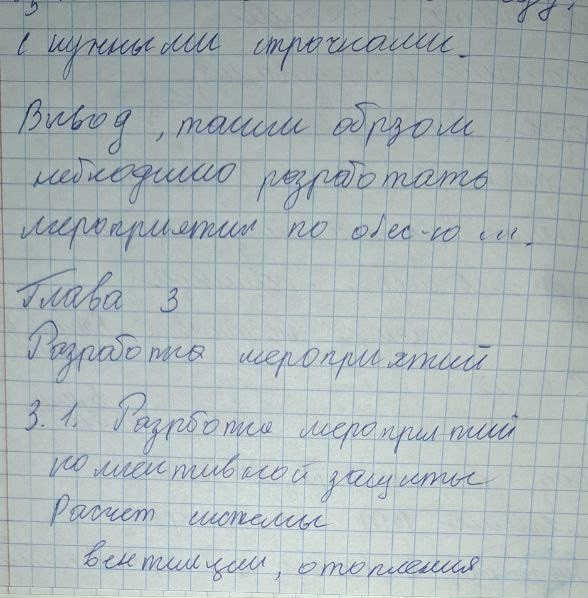 с нужными строчками.
Вывод, таким обрзом
небходимо разработать
мероприятия по обес-ю
Глава 3
Разработка мероприятий
3.1. Разрботка мероприятий
коллективной защиты
Расчет системы
вентиляции, отопления